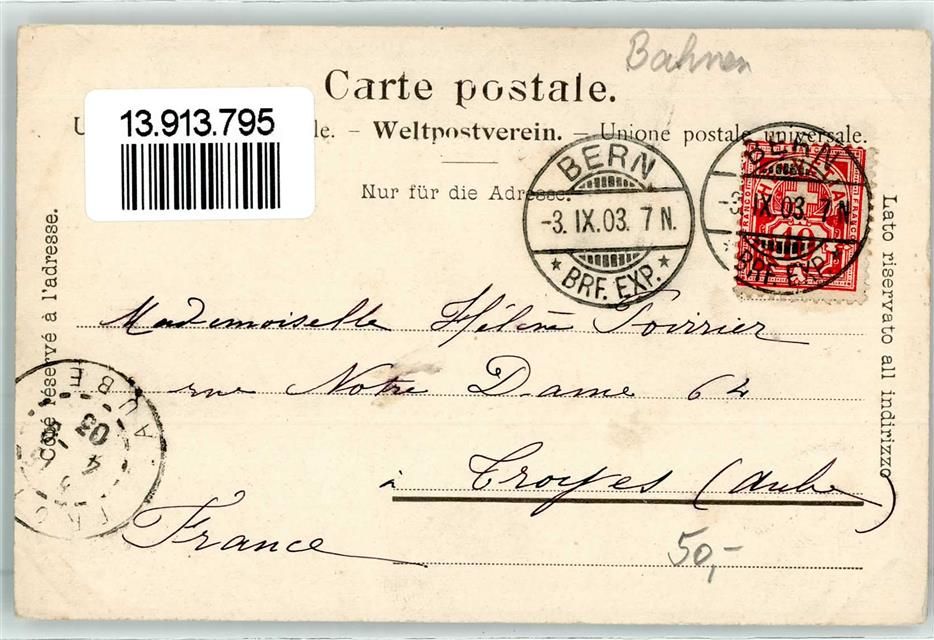 Bahnen
Carte postale.
13.913.795
le. – Weltpostverein. – Unione postale universale.
Nur für die Adresse.
BERN
-3. IX. 03. 7 N.
BRF. EXP.
BERN
-3. IX. 03. 7 N
BRF. EXP.
FRANCO
10
Côté réservé à l'adresse.
Lato riservato all indirizzo
Mademoiselle Hélène Poirrier
rue Notre Dame 64
à Troyes (Aube)
France
50,-
AUBE
4
03